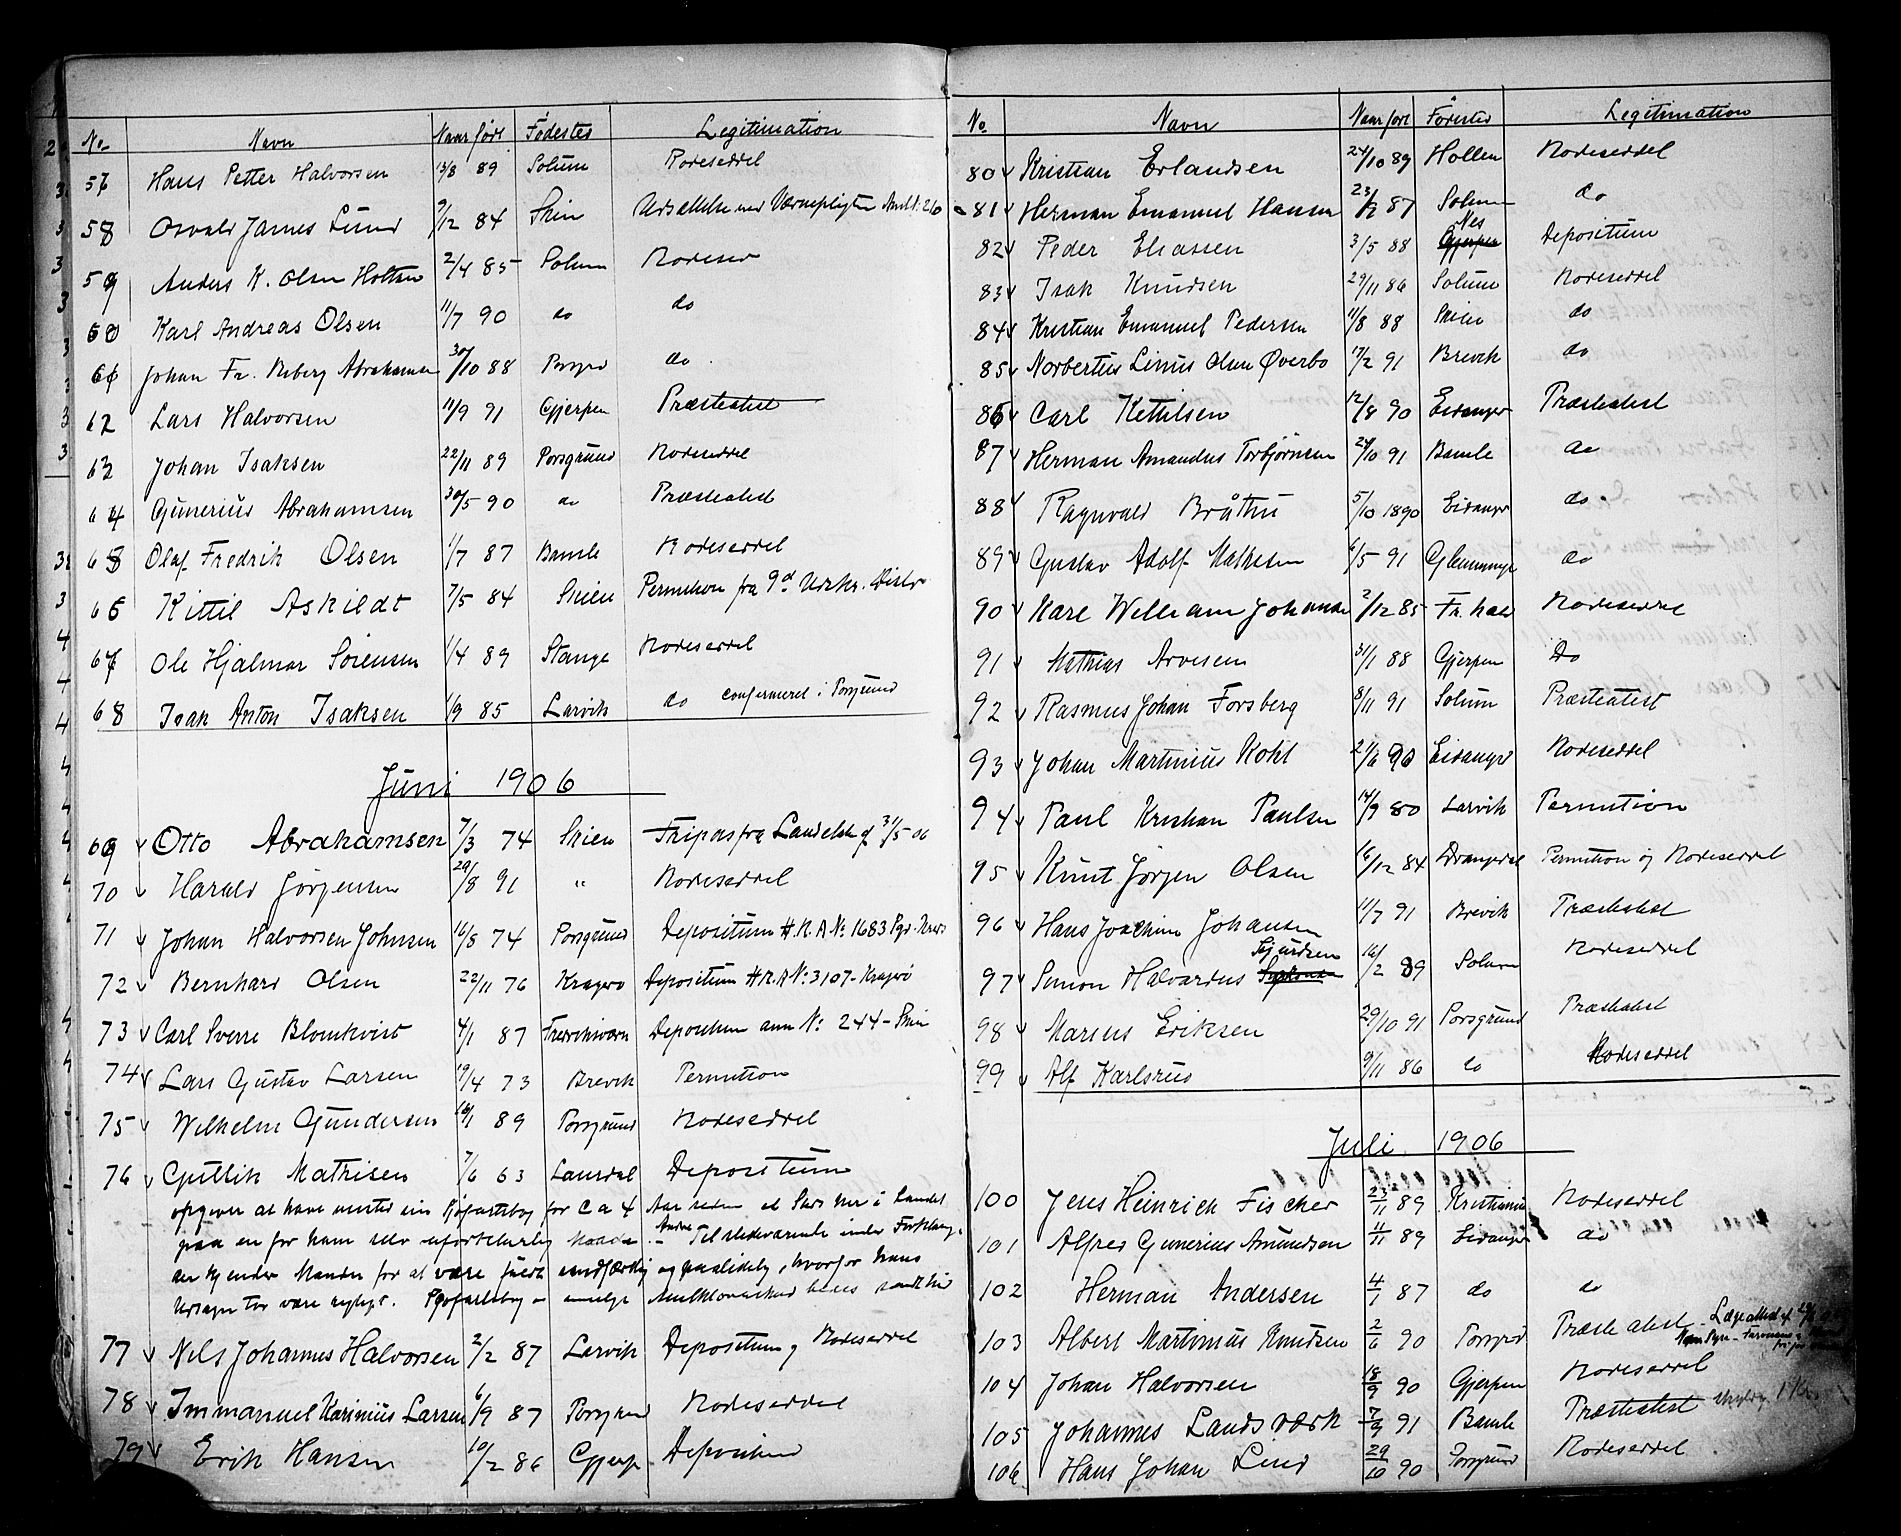 No Navn Naar født Fødested Legitimation
57 Hans Petter Halvorsen 13/8 89 Solum Rodeseddel
58 Osvald James Lund 9/12 84 Skien Udsættelse med Værnepligten
59 Anders K. Olsen Holtan 2/4 85 Solum Rodesed
60 Karl Andreas Olsen 11/7 90 do do
61 Johan Fr. Abrahamsen 30/10 88 Porsgrd do
62 Lars Halvorsen 11/9 91 Gjerpen Præsteatest
63 Johan Isaksen 22/11 89 Porsgrund Rodeseddel
64 Gunerius Abrahamsen 30/5 90 do Præsteatest
65 Olaf Fredrik Olsen 1/7 87 Bamle Rodeseddel
66 Kittil Askildt 7/5 84 Skien Permition fra 9d Udskr. Distr
67 Ole Hjalmar Sørensen 1/4 89 Stange Rodeseddel
68 Isak Anton Isaksen 1/9 85 Larvik do confirmeret i Porsgrund
Juni 1906
69 Otto Abrahamsen 7/3 74 Skien Fripas fra 31/5 06
70 Harald Jørgensen 29/8 91 " Rodeseddel
71 Johan Halvorsen Johnsen 16/8 74 Porsgrund Depositum H.R.A No 1683 Pgr. Kreds
72 Bernhard Olsen 22/11 76 Kragerø Depositum H.R.A No: 3107 - Kragerø
73 Carl Sverre Blomkvist 4/1 87 Fredriksværn Depositum ann No: 244 - Skien
74 Lars Gustav Larsen 19/4 73 Brevik Permition
75 Wilhelm Gundersen 16/1 89 Porsgrund Rodeseddel
76 Gutlik Mathisen 7/6 63 Laurdal Depositum
opgiver at have mistet sin Sjøfartsbog for ca 4 Aar siden et Sted her i Landet
paa en for ham selv uforklarlig Maade. - Andre Tilstedeværende
kjender Manden for at være fuldt sandfærdig og paalidelig, hvorfor hans
Udsagn tør være rigtigt. Sjøfartsbog
77 Nils Johannes Halvorsen 2/2 87 Larvik Depositum og Rodeseddel
78 Immanuel Karinius Larsen 6/9 87 Porsgrund Rodeseddel
79 Erik Hansen 10/2 86 Gjerp Depositum
No Navn Naar født Fødested Legitimation
80 Kristian Erlandsen 24/10 89 Hollen Rodeseddel
81 Herman Emanuel Hansen 23/2 87 Solum do
82 Peder Eliassen 3/5 88 Gjerpen Nes Depositum
83 Isak Knudsen 29/11 86 Solum Rodeseddel
84 Kristian Emanuel Pedersen 11/8 88 Skien do
85 Norbertus Linus Olsen Øverbø 17/2 91 Brevik do
86 Carl Kettilsen 12/8 90 Eidanger Præsteatest
87 Herman Amandus Torbjørnsen 24/10 91 Bamle do
88 Ragnvald Bråthu 5/10 1890 Eidanger do
89 Gustav Adolf Mathisen 6/5 91 Glemminge do
90 Karl William Johansen 2/12 85 Fr. hald Rodeseddel
91 Mathias Arvesen 31/1 88 Gjerpen Do
92 Rasmus Johan Forsberg 8/11 91 Solum Præsteatest
93 Johan Martinius Kohl 21/6 90 Eidanger Rodeseddel
94 Paul Kristian Paulsen 14/9 80 Larvik Permition
95 Knut Jørgen Olsen 16/12 84 Drangedal Permition og Rodeseddel
96 Hans Joachim Johansen 11/7 91 Brevik Præsteatest
97 Simon Halvardus Sigurdsen 16/2 89 Solum Rodeseddel
98 Marius Eriksen 29/10 91 Porsgrund Præsteatest
99 Alf Karlsrud 9/11 86 do Rodeseddel
Juli 1906
100 Jens Heinrich Fischer 23/11 89 Kristiania Rodeseddel
101 Alfred Gunerius Amundsen 11/11 89 Eidanger do
102 Herman Andersen 4/1 87 do do
103 Albert Martinius Knudsen 2/6 90 Porsgrd Præsteatest - Lægeattest af
104 Johan Halvorsen 18/9 90 Gjerpen Rodeseddel
105 Johannes Landsværk 7/9 91 Bamle Præsteatest
106 Hans Johan Lund 29/10 90 Porsgrund Rodeseddel